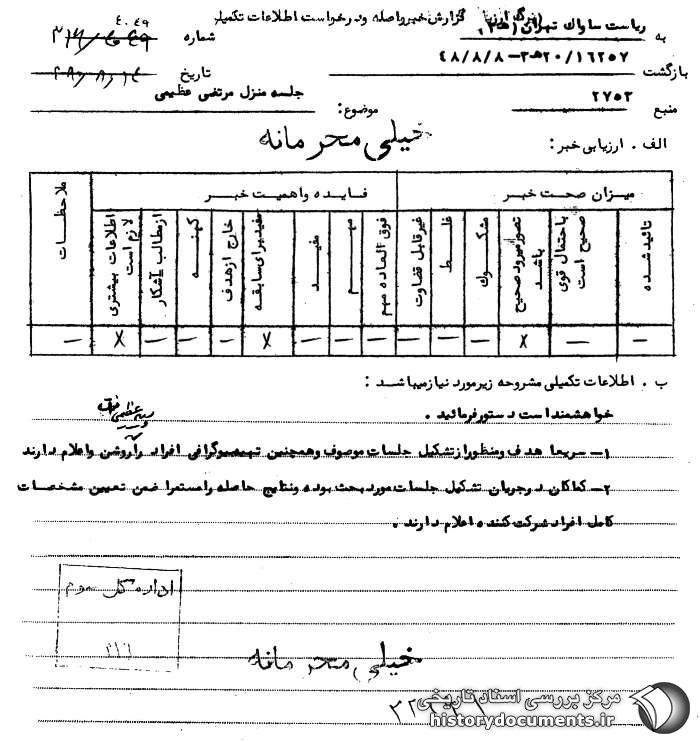 (برگ ارزیابی گزارش خبر واصله و درخواست اطلاعات تکمیلی)
به ریاست ساواک تهران (۳ه‍ ۲۰) شماره
۴۰۴۹
بازگشت ۱۶۲۵۷/۲۰ه‍۳-۴۸/۸/۸ تاریخ
منبع ۲۷۵۲ موضوع: جلسه منزل مرتضی عظیمی
خیلی محرمانه
الف . ارزیابی خبر:
میزان صحت خبر فایده و اهمیت خبر ملاحظات
تائید شده
با احتمال قوی صحیح است
تصور میرود صحیح باشد
مشکوک
غلط
غیرقابل قضاوت
فوق العاده مهم
مهم
مفید
مفید برای سابقه
خارج از هدف
کهنه
از مطالب آشکار
اطلاعات بیشتری لازم است
— — x — — — — — — x — — — x —
ب . اطلاعات تکمیلی مشروحه زیر مورد نیاز میباشد:
خواهشمند است دستور فرمائید .
۱- سریعا هدف و منظور از تشکیل جلسات موصوف و همچنین بیوگرافی افراد را روشن و اعلام دارند
۲- کماکان در جریان تشکیل جلسات مورد بحث بوده و نتایج حاصله را مستمرا ضمن تعیین مشخصات
کامل افراد شرکت کننده اعلام دارند .
اداره کل سوم
۳۱۶
خیلی محرمانه
مرکز بررسی اسناد تاریخی
historydocuments.ir